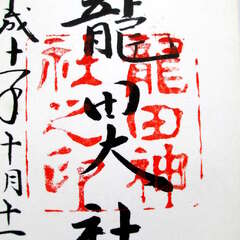 龍田大社
龍田神
社之印
成十年十月十一